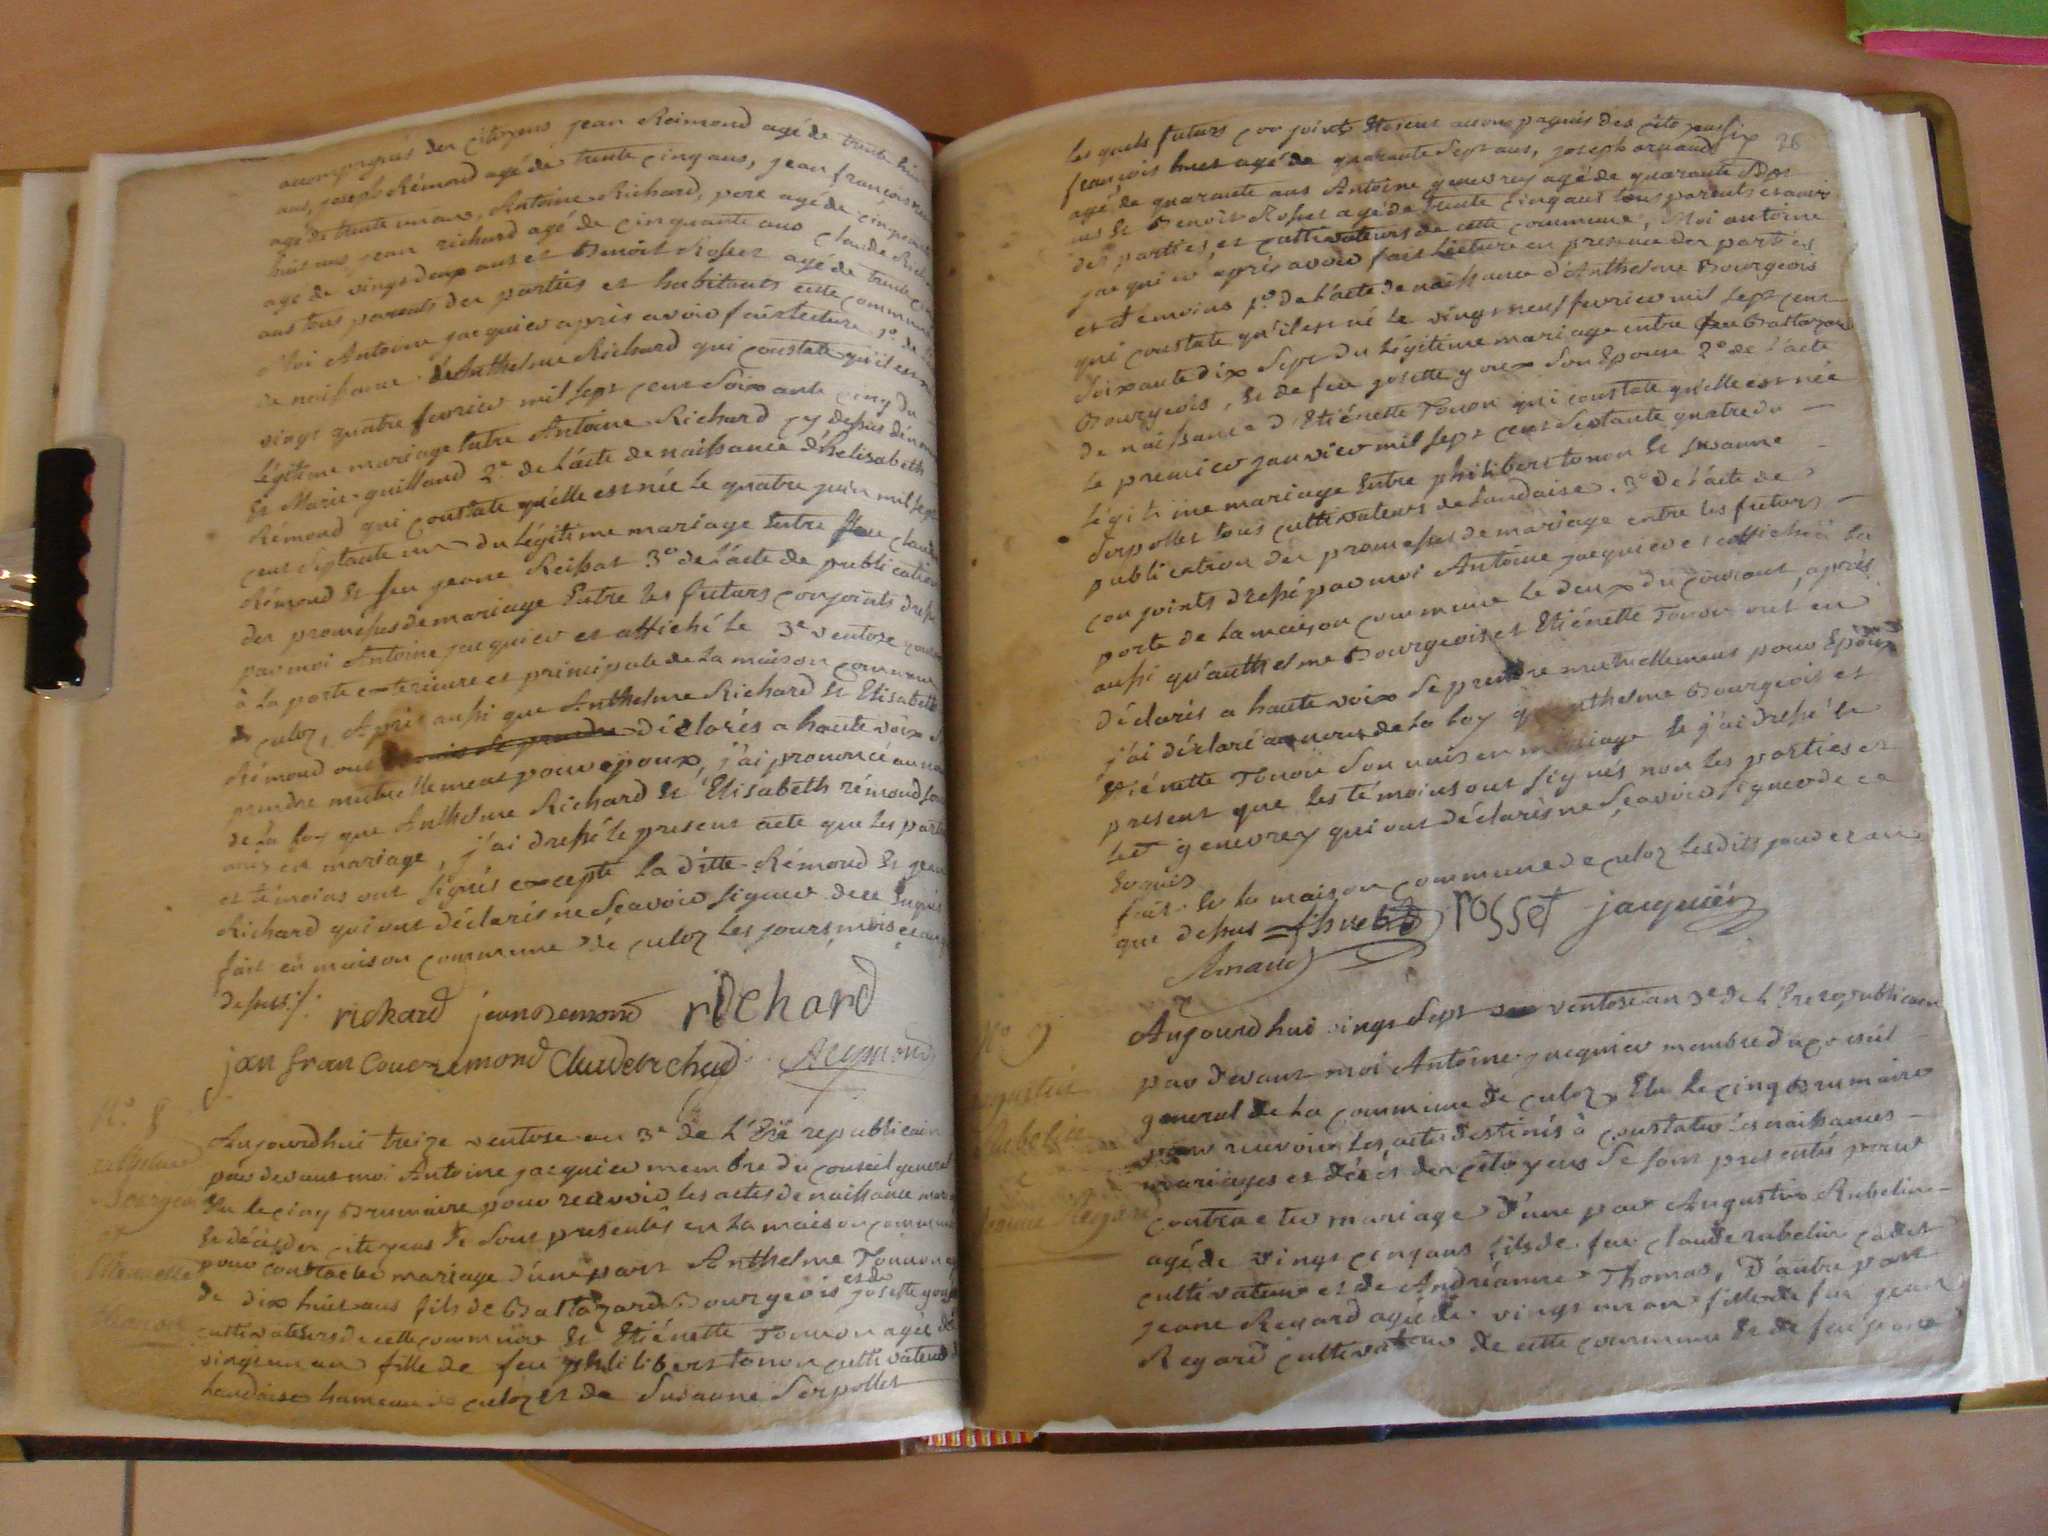 accompagnés des citoyens jean Reimond agé de trente huit
ans, joseph Rémond agé de trente cinq ans, jean françois
agé de trente un an, Antoine Richard, pere agé de cinquante
huit ans jean richard agé de cinquante ans claude Rich
agé de vingt deux ans et Benoit Rosset agé de trente
ans tous parents des parties et habitants cette commune
Moi Antoine jacquier après avoir fait lecture 1º de
de naissance d'Anthelme Richard qui constate qu'il est
vingt quatre fevrier mil sept cent soixante cinq du
légitime mariage entre Antoine Richard cy dessus dénom
Et Marie guilland 2º de l'acte de naissance d'helisabeth
Rémond qui constate qu'elle est née le quatre juin mil sept
cent septante un du légitime mariage Entre feu claude
Rémond Et feu jeane Reibat 3º de l'acte de publication
des promesses de mariage Entre les futurs conjoints dressé
par moi Antoine jacquier et affiché le 3e ventose
à la porte exterieure et principale de la maison commune
de culoz, Après aussi que Anthelme Richard Et Elisabeth
Rémond ont déclarés a haute voix
prendre mutuellement pour époux, j'ai prononcé au nom
de la loy que Anthelme Richard Et Elisabeth rémond sont
unis en mariage, j'ai dressé le present acte que les parties
et témoins ont signés excepté la ditte Rémond Et jean
Richard qui ont déclarés ne sçavoir signer de ce Enquis
fait en maison commune de culoz les jours, mois et an que
dessus ·/·
richard jean remond richard
jan francoue remond Claude richad
Nº 8
Bourgeois
et
Etiennette
Aujourdhui treize ventose an 3e de l'Ere republicain
par devant moi Antoine jacquier membre du conseil general
Elu le cinq Brumaire pour recevoir les actes de naissance
Et décès des citoyens Se sont presentés en la maison commune
pour contracter mariage d'une part Anthelme Tonnon
de dix huit ans fils de Baltazard Bourgeois et de josette
cultivateurs de cette commune Et Etiénette Tonnon agée de
vingt un an fille de feu philibert tonon cultivateur
landaise hameau de culoz et de Susanne Serpollet
26
les quels futurs conjoints Etoient accompagnés des citoyens
françois huet agé de quarante sept ans, joseph arnaud
agé de quarante ans Antoine genevrey agé de quarante sept
ans Et Benoit Rosset agé de trente cinq ans tous parents et amis
des parties, et cultivateurs de cette commune, Moi antoine
jacquier après avoir fait lecture en presence des parties
et témoins 1º de l'acte de naissance d'Anthelme Bourgeois
qui constate qu'il est né le vingt neuf fevrier mil sept cent
soixante dix sept du légitime mariage entre feu Baltazard
Bourgeois, Et de feu josette goux son Epouse 2º de l'acte
de naissance d'Etiénette Tonon qui constate qu'elle est née
le premier janvier mil sept cent septante quatre du
légitime mariage Entre philibert tonon Et susanne
Serpollet tous cultivateurs de landaise. 3º de l'acte de
publication des promesses de mariage entre les futurs
conjoints dressé par moi Antoine jacquier et affiché à la
porte de la maison commune le deux du courant, après
aussi qu'anthelme Bourgeois et Etiénette Tonon ont en
déclarés a haute voix se prendre mutuellement pour Epoux
j'ai déclaré au nom de la loy qu'anthelme Bourgeois et
Etiénette Tonon sont unis en mariage Et j'ai dressé le
present que les témoins ont signés non les parties et
led genevrey qui ont déclarés ne sçavoir signer de ce
Enquis
fait En la maison commune de culoz lesdits jour et an
que dessus rosset jacquier
Arnaud
Nº 9
Augustin
Rubelin
et
Jeanne Regard
Aujourdhui vingt sept ventose an 3e de l'Ere republicain
par devant moi Antoine jacquier membre du conseil
general de la commune de culoz, Elu le cinq Brumaire
pour recevoir les actes destinés à constater les naissances
mariages et décès des citoyens Se sont presentés pour
contracter mariage d'une part Augustin Rubelin
agé de vingt cinq ans fils de feu claude rubelin cadet
cultivateur et de Andréanne Thomas, D'autre part
jeane Regard agée de vingt un an fille de feu jean
Regard cultivateur de cette commune Et de feu jeane